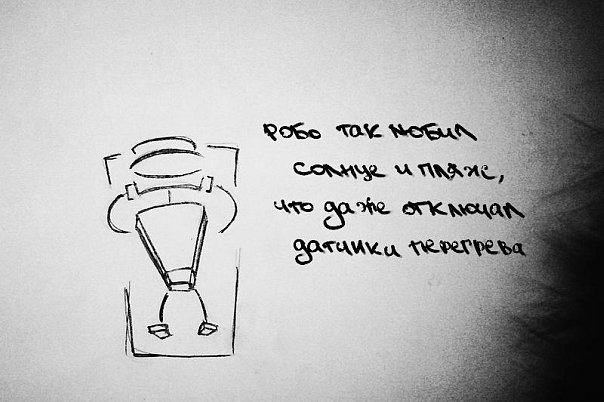 Робо так любил
солнце и пляж,
что даже отключал
датчики перегрева